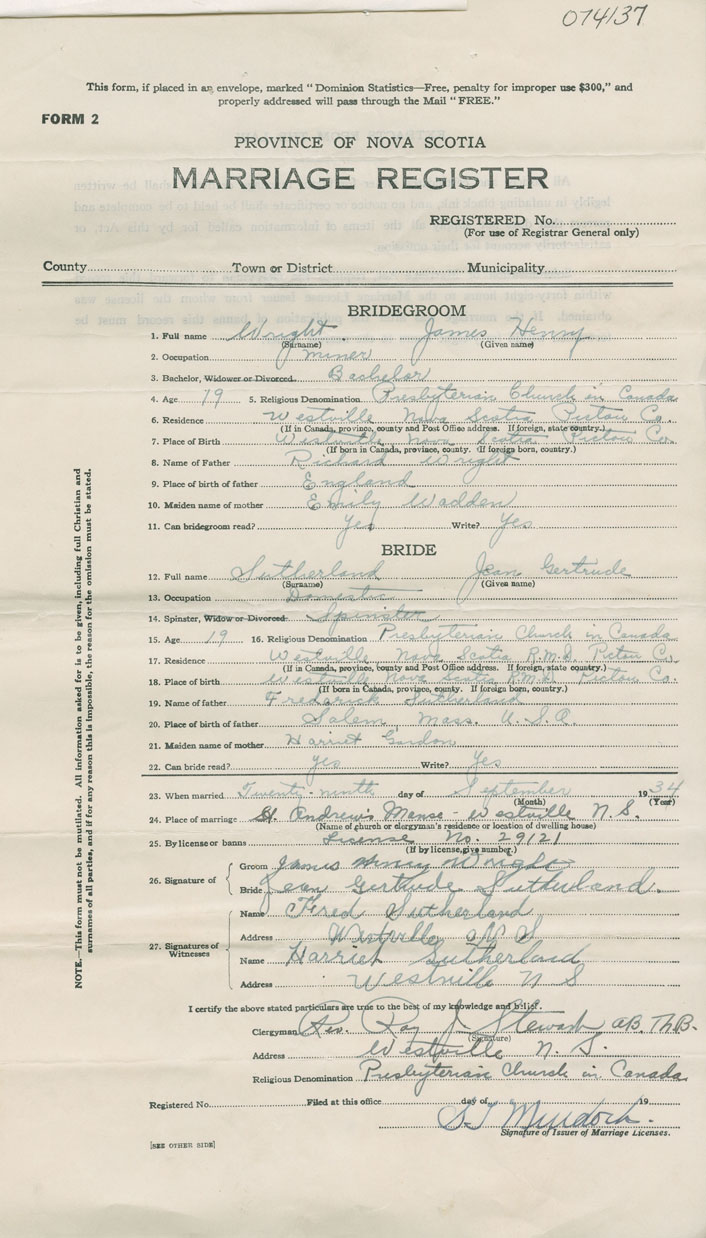 074137
This form, if placed in an envelope, marked "Dominion Statistics—Free, penalty for improper use $300," and
properly addressed will pass through the Mail "FREE."
FORM 2
PROVINCE OF NOVA SCOTIA
MARRIAGE REGISTER
REGISTERED No.
(For use of Registrar General only)
County Town or District Municipality
BRIDEGROOM
1. Full name Wright James Henry
(Surname) (Given name)
2. Occupation miner
3. Bachelor, Widower or Divorced. Bachelor
4. Age 19 5. Religious Denomination Presbyterian Church in Canada
6. Residence Westville Nova Scotia Pictou Co.
(If in Canada, province, county and Post Office address. If foreign, state country.)
7. Place of Birth Westville Nova Scotia Pictou Co.
(If born in Canada, province, county. If foreign born, country.)
8. Name of Father Richard Wright
9. Place of birth of father England
10. Maiden name of mother Emily Wadden
11. Can bridegroom read? Yes Write? Yes
BRIDE
12. Full name Sutherland Jean Gertrude
(Surname) (Given name)
13. Occupation Domestic
14. Spinster, Widow or Divorced. Spinster
15. Age 19 16. Religious Denomination Presbyterian Church in Canada
17. Residence Westville Nova Scotia R.M.D. Pictou Co.
(If in Canada, province, county and Post Office address. If foreign, state country.)
18. Place of birth Westville Nova Scotia R.M.D. Pictou Co.
(If born in Canada, province, county. If foreign born, country.)
19. Name of father Frederick Sutherland
20. Place of birth of father Salem, Mass. U.S.A.
21. Maiden name of mother Harriet Gordon
22. Can bride read? yes Write? Yes
23. When married Twenty-ninth day of September 1934
(Month) (Year)
24. Place of marriage St. Andrew's Manse - Westville N.S.
(Name of church or clergyman's residence or location of dwelling house)
25. By license or banns License No. 29121
(If by license, give number.)
26. Signature of Groom James Henry Wright
Bride Jean Gertrude Sutherland.
27. Signatures of Witnesses
Name Fred Sutherland
Address Westville N S
Name Harriet Sutherland
Address Westville N S
I certify the above stated particulars are true to the best of my knowledge and belief.
Clergyman Rev. Roy J. Stewart AB. Th.B.
(Signature)
Address Westville N. S.
Religious Denomination Presbyterian Church in Canada
Registered No. Filed at this office day of 19
Murdoch.
Signature of Issuer of Marriage Licenses.
[SEE OTHER SIDE]
NOTE.—This form must not be mutilated. All information asked for is to be given, including full Christian and
surnames of all parties, and if for any reason this is impossible, the reason for the omission must be stated.